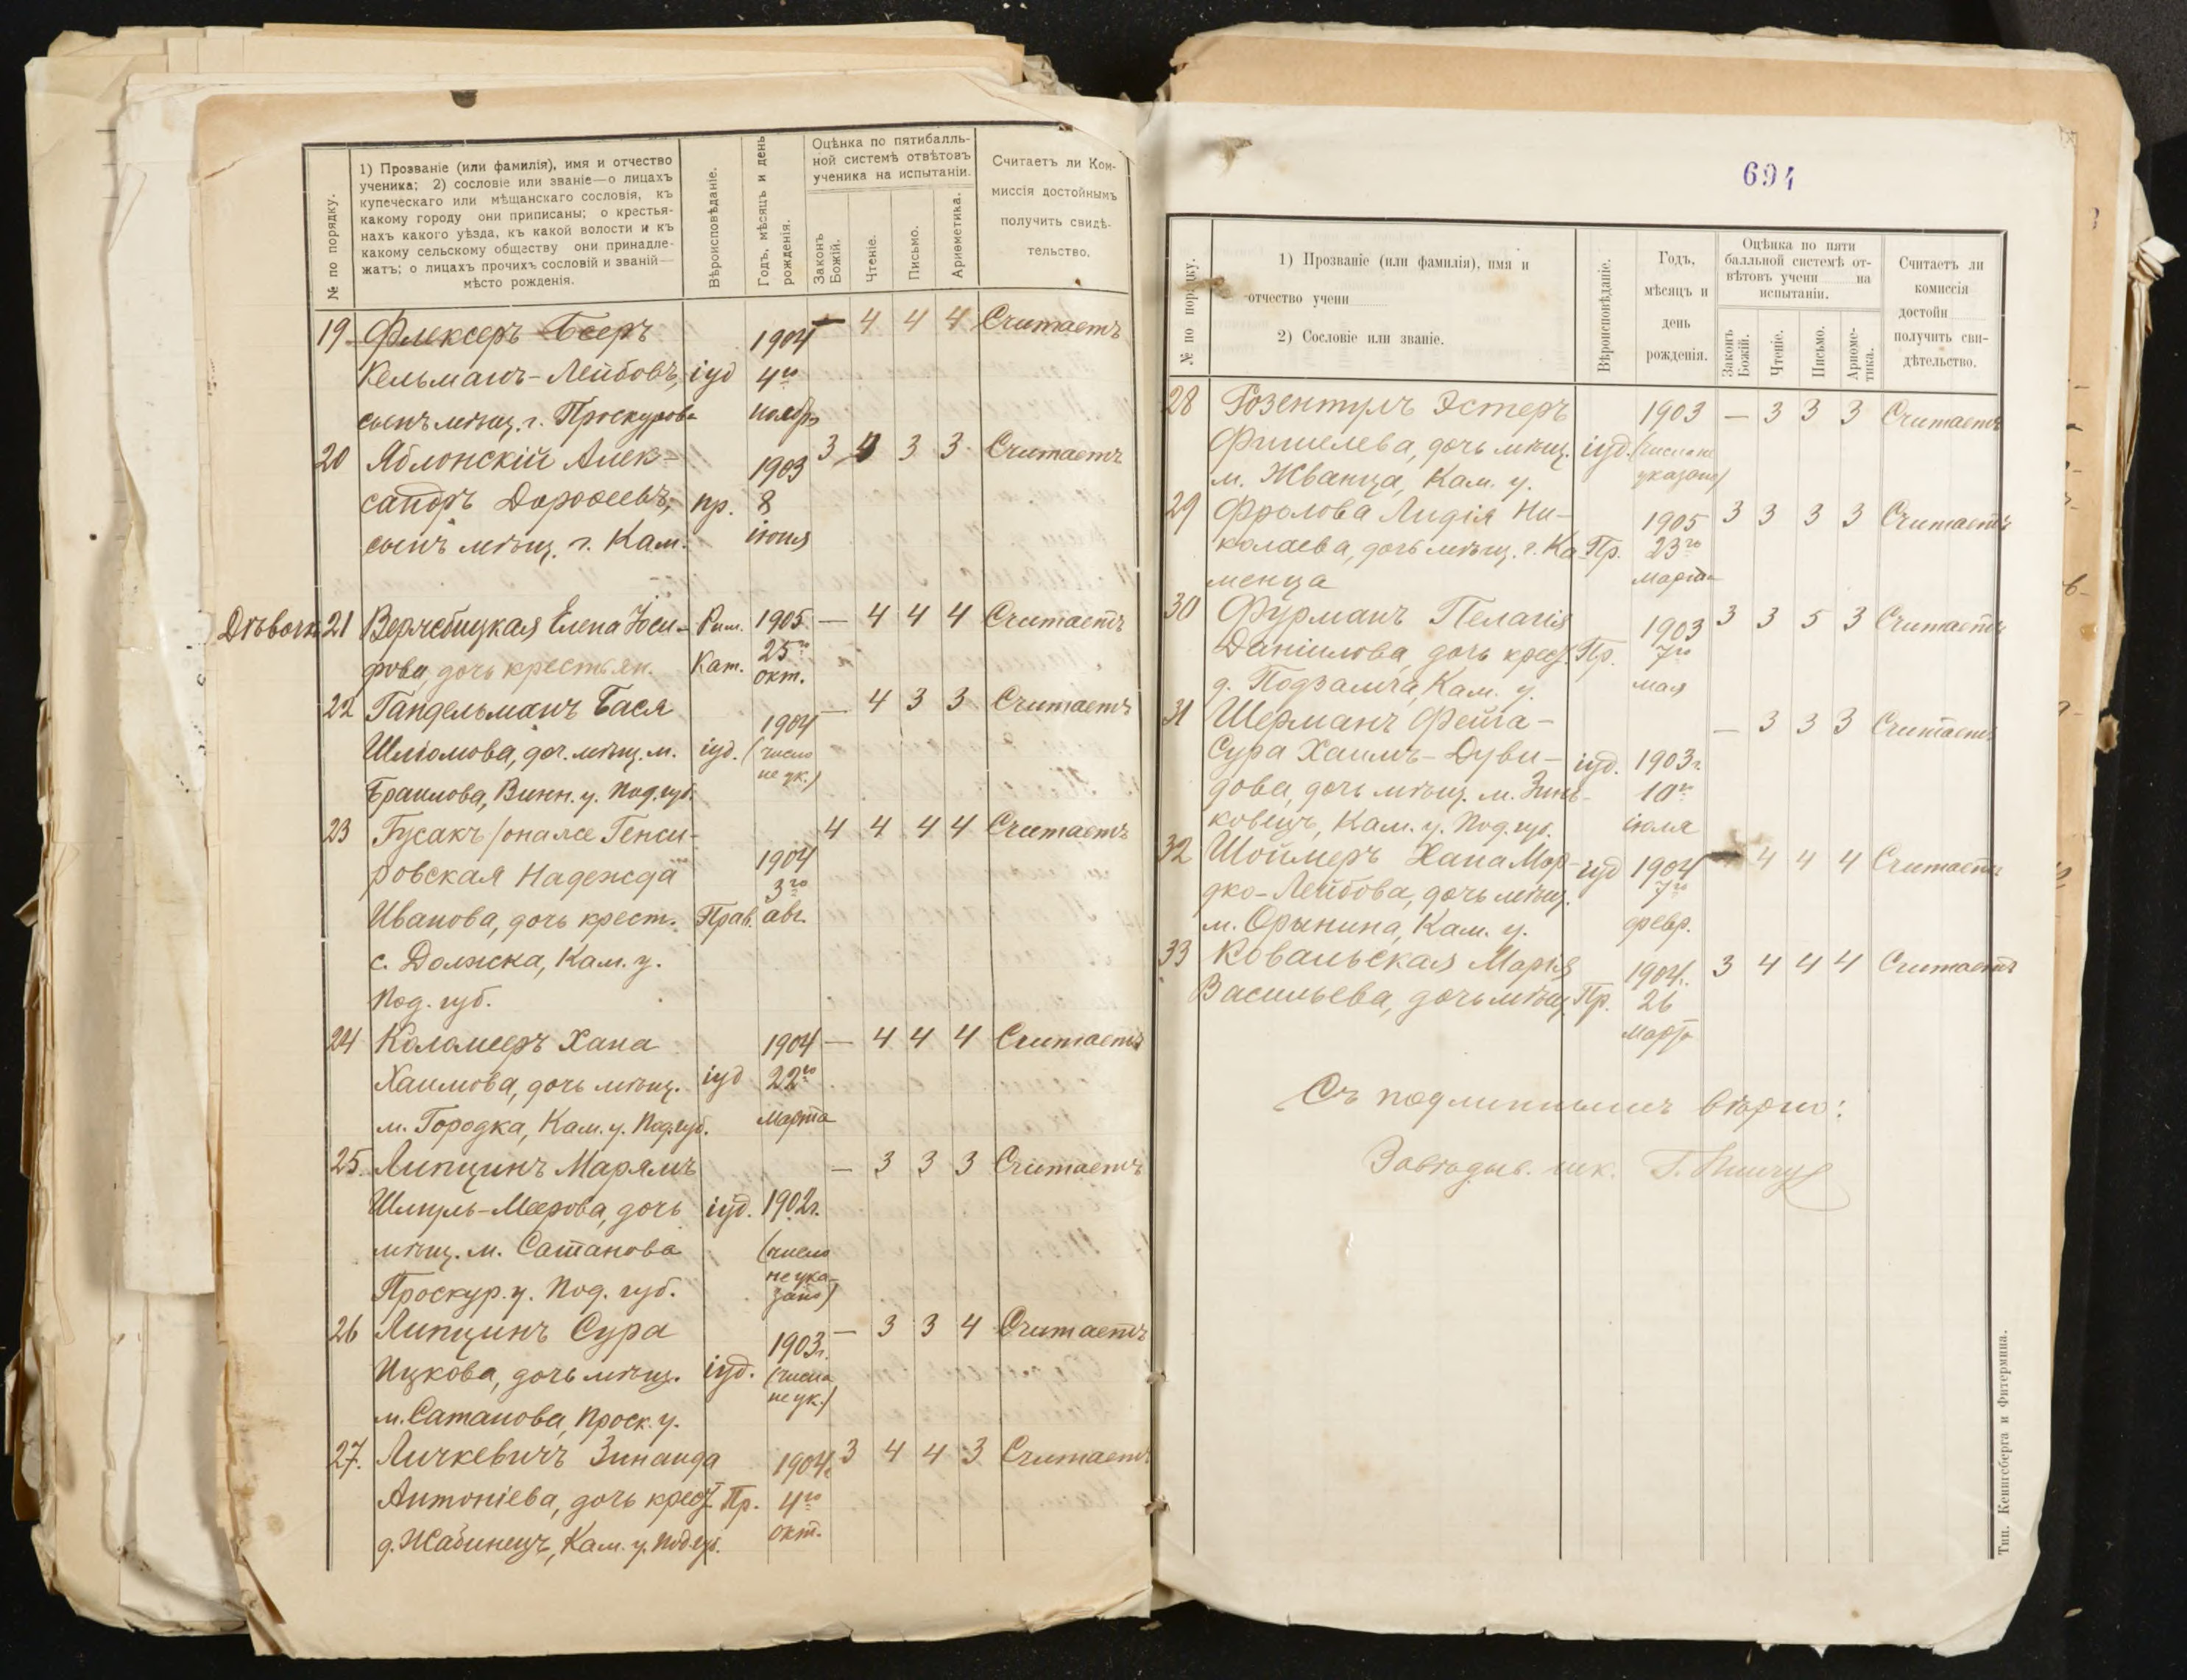 № по порядку.
1) Прозваніе (или фамилія), имя и отчество
ученика; 2) сословіе или званіе—о лицахъ
купеческаго или мѣщанскаго сословія, къ
какому городу они приписаны; о крестья-
нахъ какого уѣзда, къ какой волости и къ
какому сельскому обществу они принадле-
жатъ; о лицахъ прочихъ сословій и званій—
мѣсто рожденія.
Вѣроисповѣданіе.
Годъ, мѣсяцъ и день
рожденія.
Оцѣнка по пятибалль-
ной системѣ отвѣтовъ
ученика на испытаніи.
Законъ
Божій.
Чтеніе.
Письмо.
Ариѳметика.
Считаетъ ли Ком-
миссія достойнымъ
получить свидѣ-
тельство.
19 Флексеръ Бееръ 1904 — 4 4 4 Считаетъ
Кельманъ-Лейбовъ, іуд 4го
сынъ мѣщ. г. Проскурова ноября
20 Яблонскій Алек- 1903 3 4 3 3 Считаетъ
сандръ Дороѳеевъ, пр. 8
сынъ мѣщ. г. Кам. іюня
Дѣвочки 21 Верлебицкая Елена Іоси- Рим. 1905 — 4 4 4 Считаетъ
фова, дочь крестьян. Кат. 25го
окт.
22 Гандельманъ Бася 1904 — 4 3 3 Считаетъ
Шліомова, доч. мѣщ. м. іуд. (число
Браилова, Винн. у. Под. губ. не ук.)
23 Гусакъ (она же Генси- 4 4 4 4 Считаетъ
ровская Надежда 1904
3го
Иванова, дочь крест. Прав. авг.
с. Должка, Кам. у.
Под. губ.
24 Коломееръ Хана 1904 — 4 4 4 Считаетъ
Хаимова, дочь мѣщ. іуд 22го
м. Городка, Кам. у. Под. губ. марта
25 Липцинъ Марямъ — 3 3 3 Считаетъ
Шмуль-Меерова, дочь іуд. 1902г.
мѣщ. м. Сатанова (число
не ука-
Проскур. у. Под. губ. зано)
26 Липцинъ Сура 1903г. — 3 3 4 Считаетъ
Ицкова, дочь мѣщ. іуд. (число
не ук.)
м. Сатанова, Проск. у.
27. Личкевичъ Зинаида 1904г. 3 4 4 3 Считаетъ
Антоніева, дочь крест. Пр. 4го
д. Жабинецъ, Кам. у. Под. губ. окт.
694
№ по порядку.
1) Прозваніе (или фамилія), имя и
отчество учени
2) Сословіе или званіе.
Вѣроисповѣданіе.
Годъ,
мѣсяцъ и
день
рожденія.
Оцѣнка по пяти
балльной системѣ от-
вѣтовъ учени на
испытаніи.
Законъ
Божій.
Чтеніе.
Письмо.
Ариѳме-
тика.
Считаетъ ли
комиссія
достойн
получить сви-
дѣтельство.
28 Розентулъ Эстеръ 1903 — 3 3 3 Считаетъ
Фишелева, дочь мѣщ. іуд. (число не
м. Жванца, Кам. у. указано)
29 Фролова Лидія Ни- 1905 3 3 3 3 Считаетъ
колаева, дочь мѣщ. г. Ка Пр. 23го
менца марта
30 Фурманъ Пелагія 1903 3 3 5 3 Считаетъ
Даніилова, дочь крест. Пр. 7го
д. Подзамча, Кам. у. мая
31 Шерманъ Фейга- — 3 3 3 Считаетъ
Сура Хаимъ-Дуви- іуд. 1903г.
дова, дочь мѣщ. м. Зинь- 10го
ковецъ, Кам. у. Под. губ. іюля
32 Шоймеръ Хана Мор- іуд 1904 — 4 4 4 Считаетъ
дко-Лейбова, дочь мѣщ. 7го
м. Орынина, Кам. у. февр.
33 Ковальская Марія 1904г. 3 4 4 4 Считаетъ
Васильева, дочь мѣщ. Пр. 26
марта
Съ подлиннымъ вѣрно:
Завѣдыв. шк.
Тип. Кенигсберга и Фитермана.